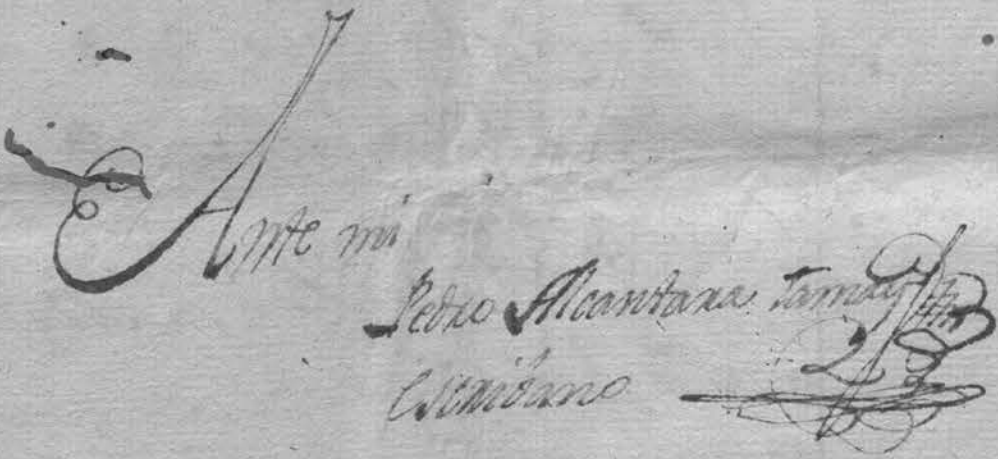 Ante mi
Pedro Alcantara Tamay
escribano